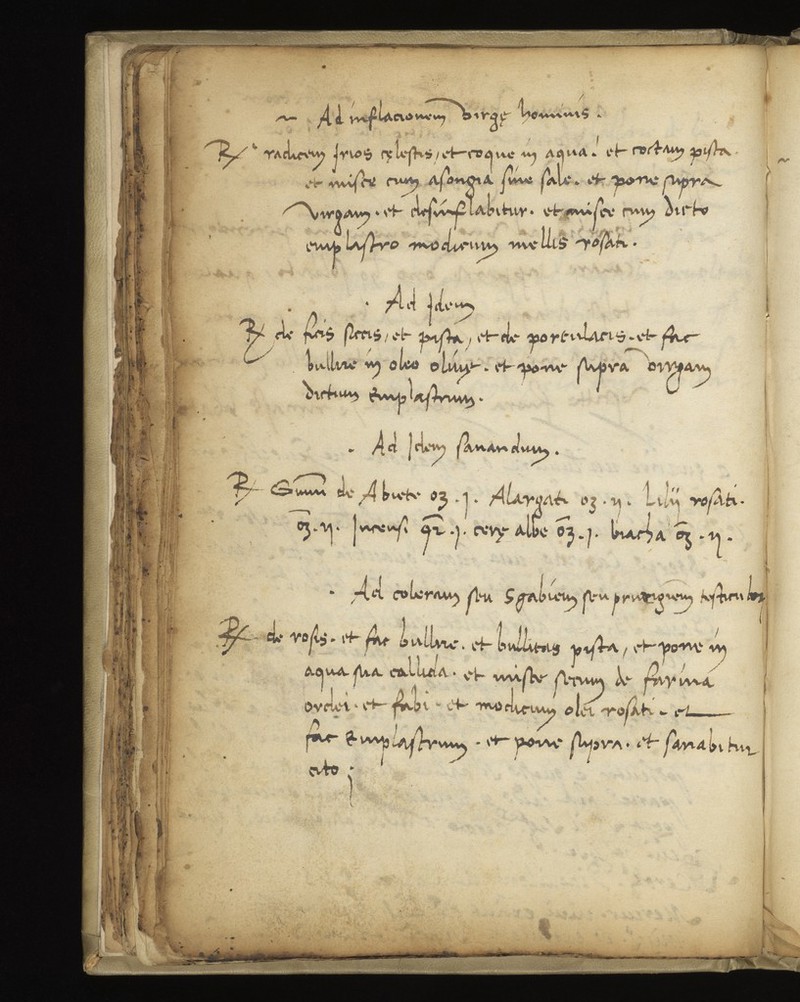 ~ Ad inflacionem virgę hominis .
℞ radicem Jrios cęlestis, et coque in aqua. et coctam pista.
et misce cum asongia sine sale. et pone supra
virgam. et desinflabitur. et misce cum dicto
emplastro modicum mellis rosati.
. Ad Jdem
℞ de ficis siccis, et pista, et de portulacis. et fac
bullire in oleo oliuę. et pone supra virgam
dictum Emplastrum.
. Ad Jdem sanandum.
℞ de Abiete o℥ .j. Alargati o℥ .ij. Lilij rosati.
o℥ .ij. Incensi .j. cerę albe o℥ .j. biacha o℥ .ij.
. Ad coleram seu Sgabiem seu prurigiem
℞ de rosis. et fac bullire. et bullitas pista, et pone in
aqua sua callida. et misce secum de farina
ordei. et fabi. et modicum olei rosati. et
fac Emplastrum. et pone supra. et sanabitur
cito ;